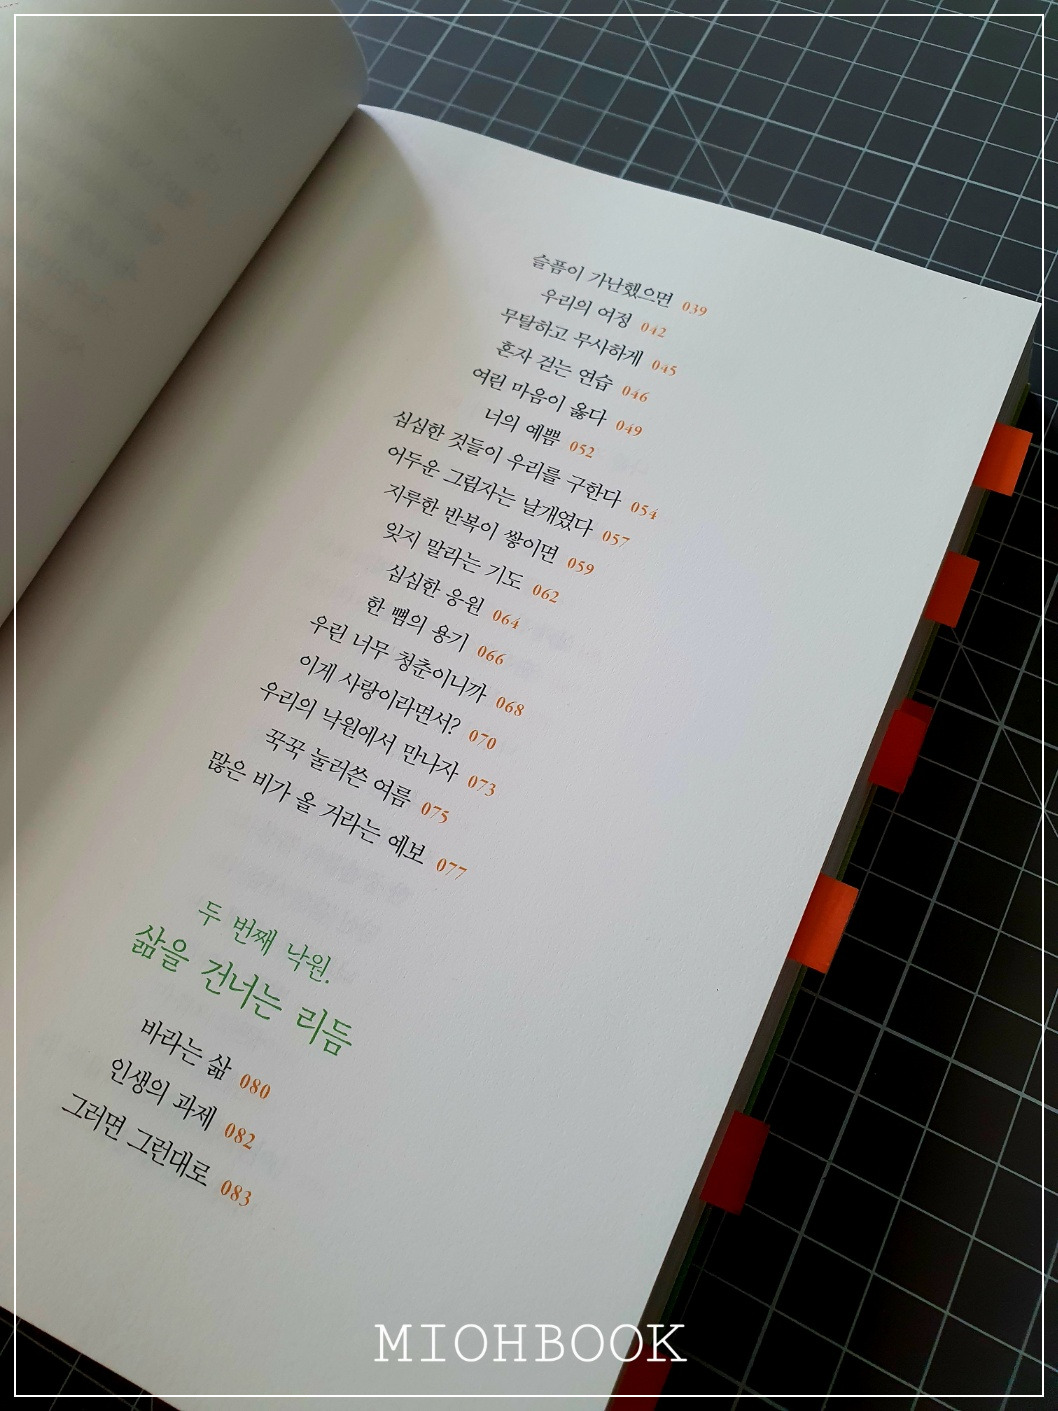 슬픔이 가난했으면 039
우리의 여정 042
무탈하고 무사하게 045
혼자 걷는 연습 046
여린 마음이 옳다 049
너의 예쁨 052
심심한 것들이 우리를 구한다 054
어두운 그림자는 날개였다 057
지루한 반복이 쌓이면 059
잊지 말라는 기도 062
심심한 응원 064
한 뼘의 용기 066
우린 너무 청춘이니까 068
이게 사랑이라면서? 070
우리의 낙원에서 만나자 073
꾹꾹 눌러쓴 여름 075
많은 비가 올 거라는 예보 077
두 번째 낙원.
삶을 건너는 리듬
바라는 삶 080
인생의 과제 082
그러면 그런대로 083
MIOHBOOK